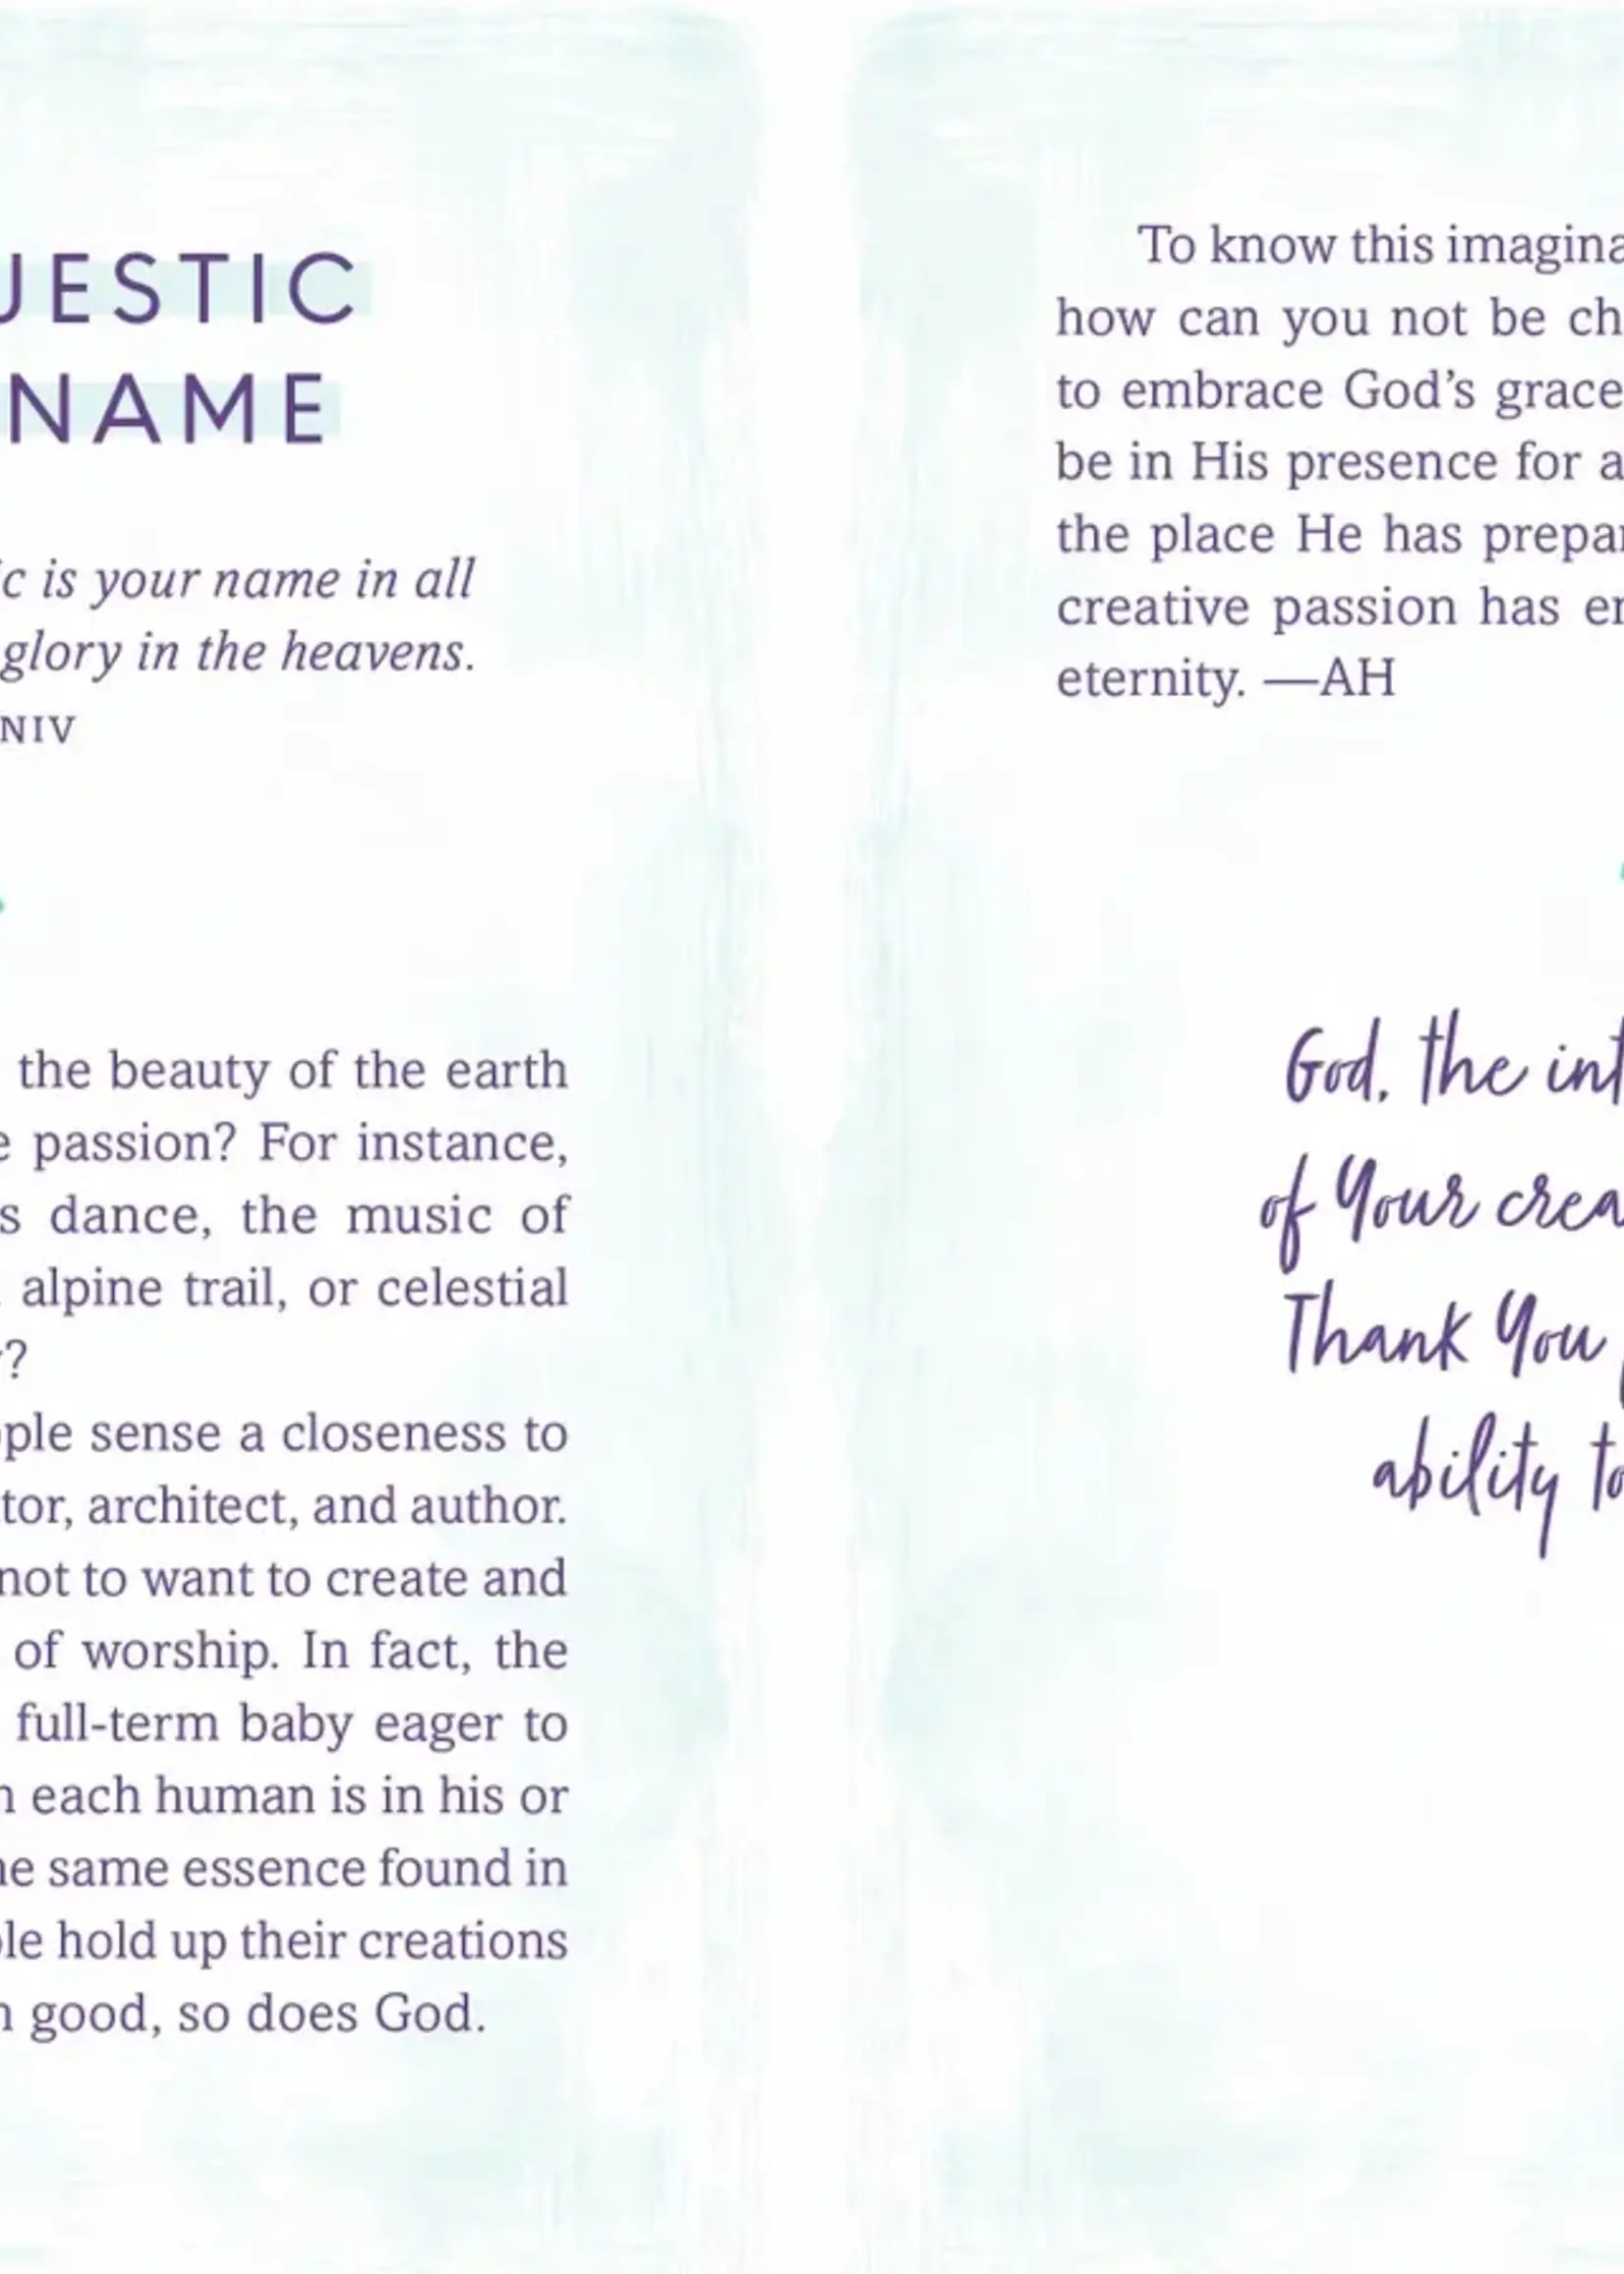 JESTIC
NAME
ic is your name in all
glory in the heavens.
NIV
the beauty of the earth
e passion? For instance,
s dance, the music of
alpine trail, or celestial
?
ople sense a closeness to
tor, architect, and author.
not to want to create and
of worship. In fact, the
full-term baby eager to
n each human is in his or
he same essence found in
ole hold up their creations
n good, so does God.
To know this imagina
how can you not be ch
to embrace God's grace
be in His presence for a
the place He has prepar
creative passion has en
eternity. —AH
God, the int
of Your crea
Thank You
ability to